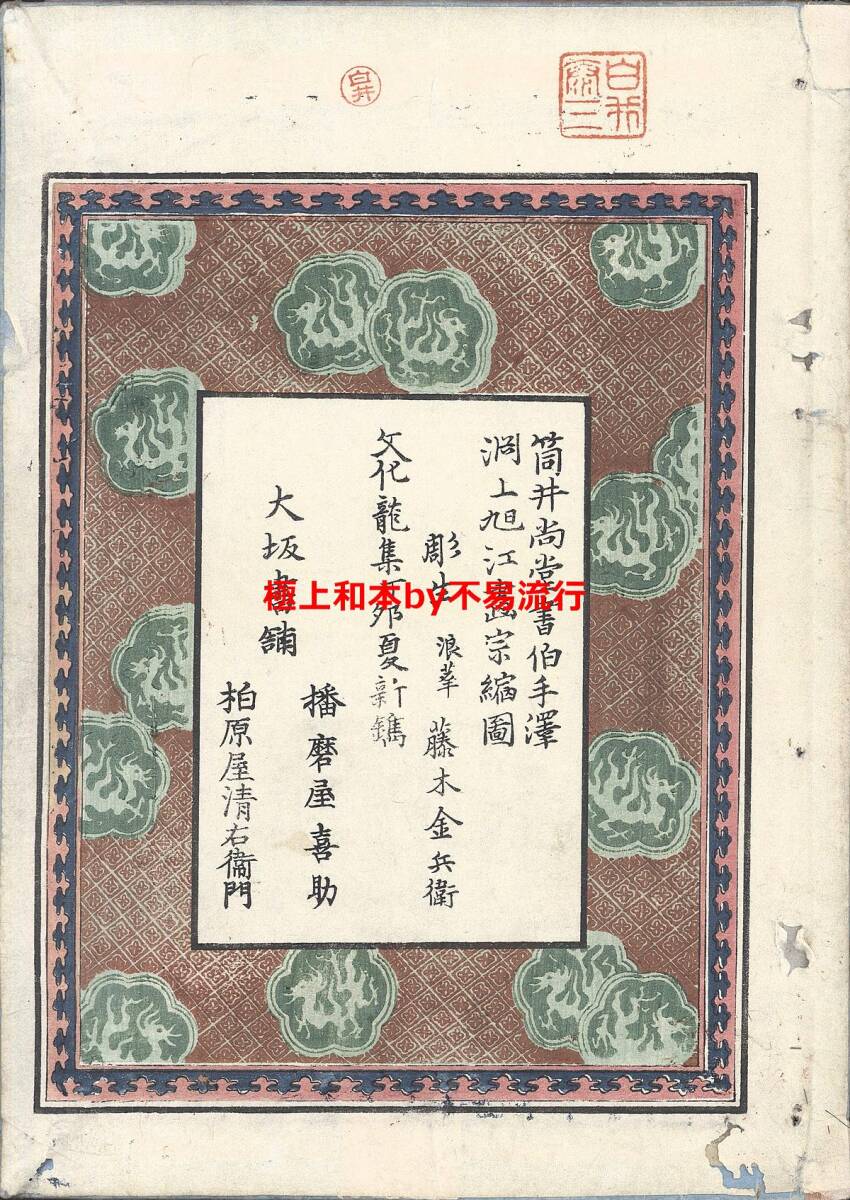 白井
筒井尚堂書伯手澤
渕上旭江畫宗縮圖
彫 浪華 藤木金兵衛
文化龍集丁卯夏新鐫
大坂書舗
播磨屋喜助
柏原屋清右衛門
極上和本by不易流行